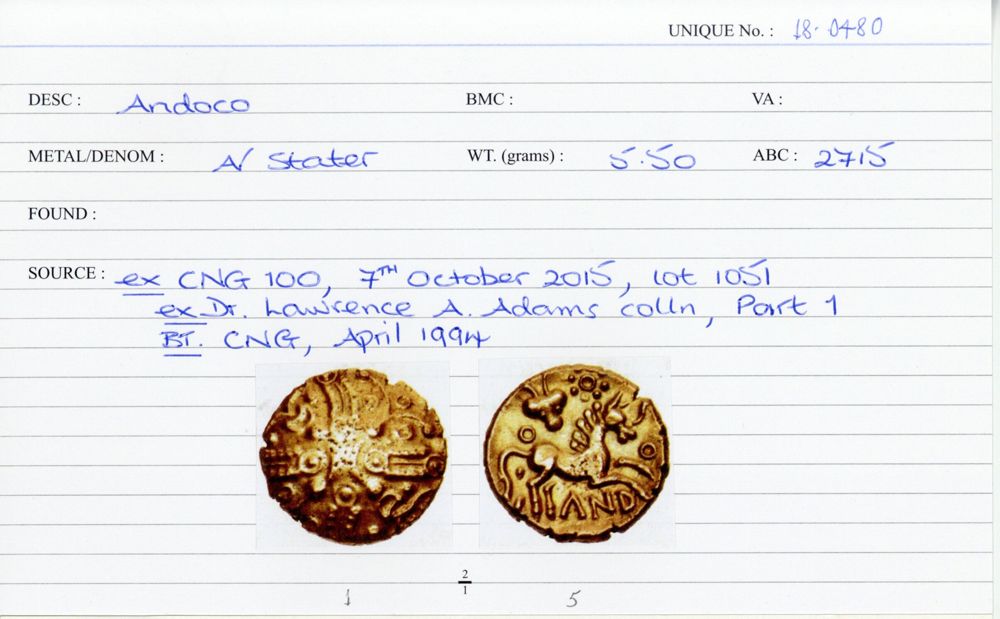 UNIQUE No. : 18.0480
DESC : Andoco BMC : VA :
METAL/DENOM : A/ Stater WT. (grams) : 5.50 ABC : 2715
FOUND :
SOURCE : ex CNG 100, 7TH October 2015, lot 1051
ex. Dr. Lawrence A. Adams colln, Part 1
BT. CNG, April 1994
AND
2
1
1 5